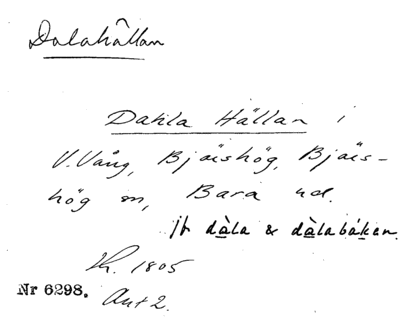 Dalahållan
Dahla Hällan i
V. Vång, Bjäishög, Bjäis-
hög sn, Bara hd.
jfr dàla & dàlabákan
Lh. 1805
Nr 6298. Ant 2.